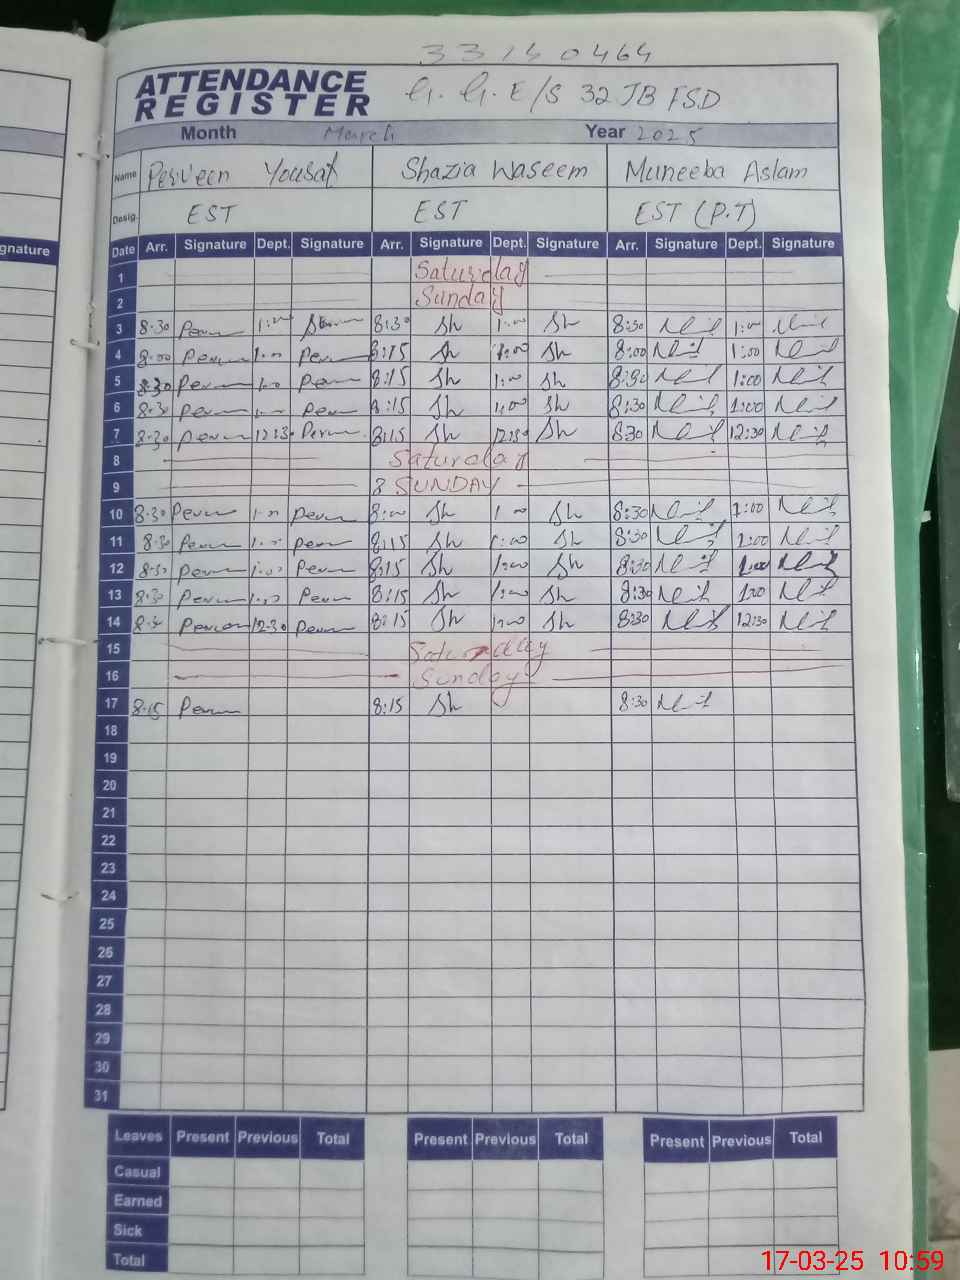 33140464
ATTENDANCE
REGISTER
G. G. E/S 32 JB FSD
Month March Year 2025
Name Perveen Yousaf Shazia Waseem Muneeba Aslam
Desig. EST EST EST (P.T)
gnature
Date Arr. Signature Dept. Signature Arr. Signature Dept. Signature Arr. Signature Dept. Signature
1 Saturday
2 Sunday
3 8:30 1:00 8:30 Sh 1:00 Sh 8:30 1:00
4 8:00 1:00 8:15 Sh 1:00 Sh 8:00 1:00
5 8:30 1:00 8:15 Sh 1:00 Sh 8:30 1:00
6 8:30 1:00 8:15 Sh 1:00 Sh 8:30 1:00
7 8:30 12:30 8:15 Sh 12:30 Sh 830 12:30
8 Saturday
9 SUNDAY
10 8:30 1:00 8:00 Sh 1:00 Sh 8:30 1:00
11 8:30 1:00 8:15 Sh 1:00 Sh 8:30 1:00
12 8:30 1:00 8:15 Sh 1:00 Sh 8:30 1:00
13 8:30 1:00 8:15 Sh 1:00 Sh 8:30 1:00
14 8:30 12:30 8:15 Sh Sh 8:30 12:30
15 Saturday
16 Sunday
17 8:15 8:15 Sh 8:30
18
19
20
21
22
23
24
25
26
27
28
29
30
31
Leaves Present Previous Total Present Previous Total Present Previous Total
Casual
Earned
Sick
Total
17-03-25 10:59